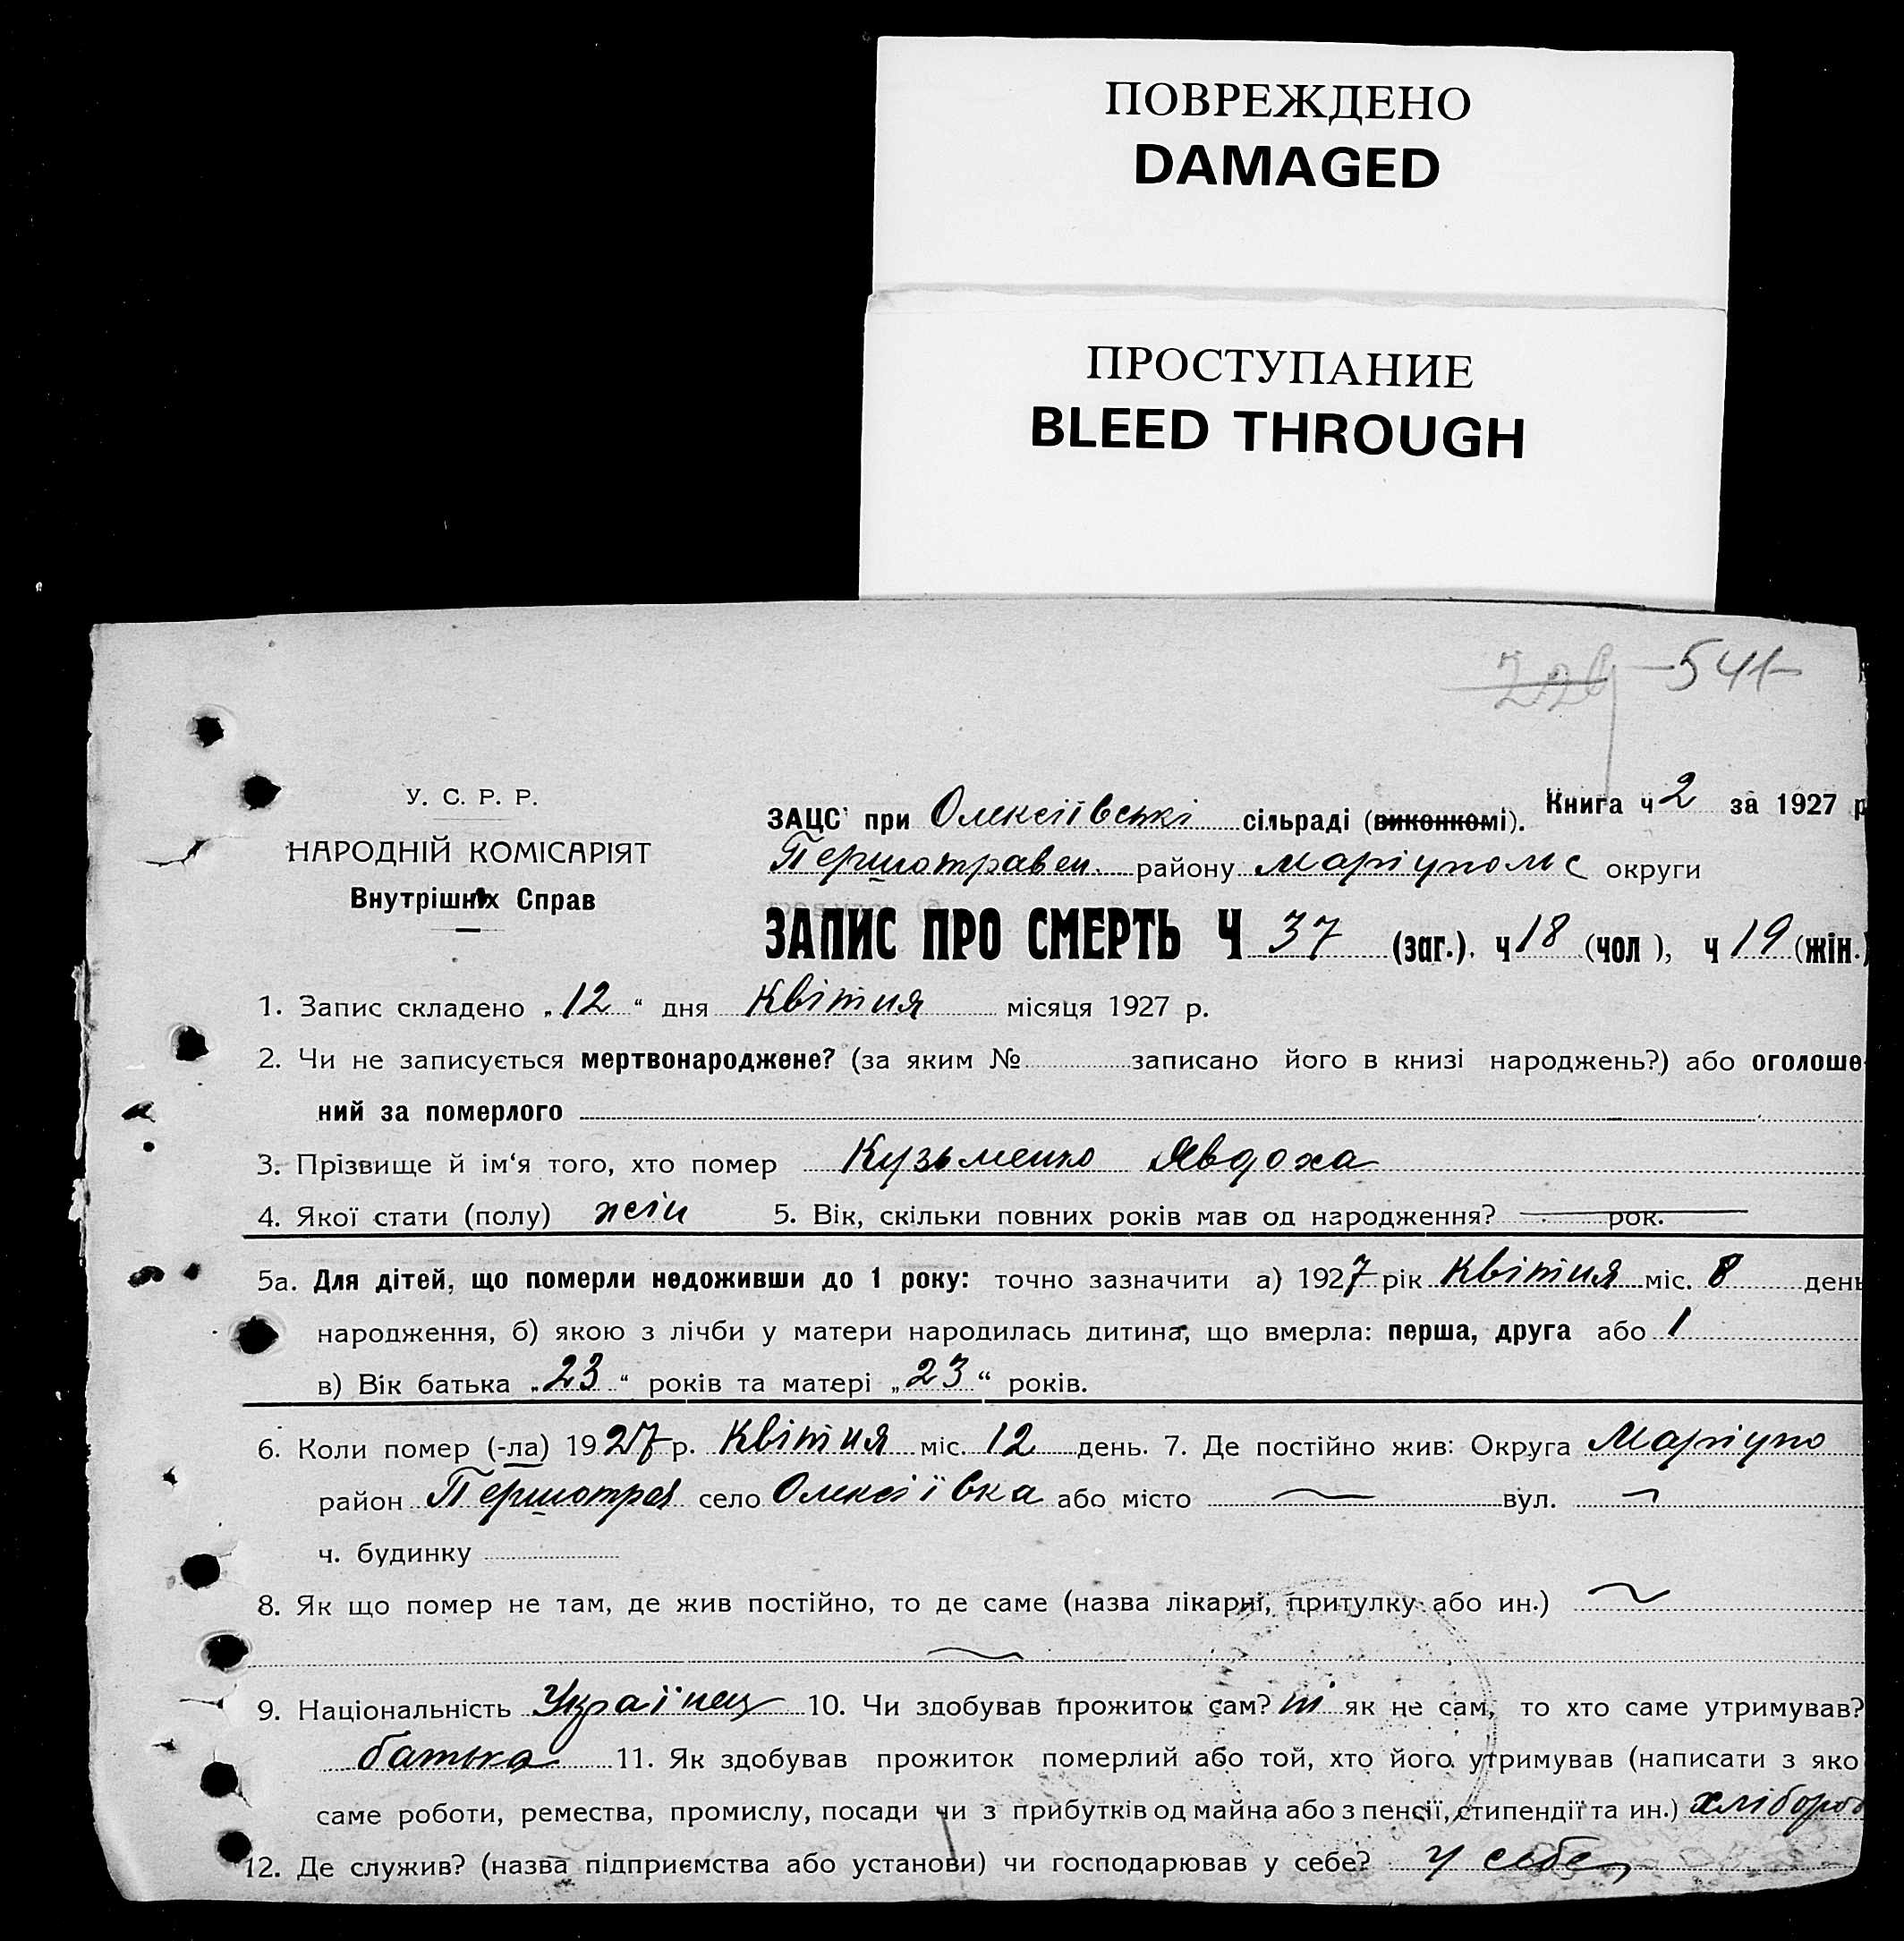 ПОВРЕЖДЕНО
DAMAGED
ПРОСТУПАНИЕ
BLEED THROUGH
541
У. С. Р. Р.
НАРОДНІЙ КОМІСАРІЯТ
Внутрішніх Справ
Книга ч 2 за 1927 р
ЗАЦС при Олексіївські сільраді (виконкомі).
Першотравен. району Маріупольс округи
ЗАПИС ПРО СМЕРТЬ Ч 37 (заг.). ч 18 (чол ), ч 19 (жін.)
1. Запис складено „12“ дня Квітня місяця 1927 р.
2. Чи не записується мертвонароджене? (за яким № записано його в книзі народжень?) або оголоше-
ний за померлого
3. Прізвище й ім‘я того, хто помер Кузьменко Явдоха
4. Якої стати (полу) жін 5. Вік, скільки повних років мав од народження? рок.
5а. Для дітей, що померли недоживши до 1 року: точно зазначити а) 1927 рік Квітня міс. 8 день
народження, б) якою з лічби у матери народилась дитина, що вмерла: перша, друга або 1
в) Вік батька „23“ років та матері „23“ років.
6. Коли помер (-ла) 1927 р. Квітня міс. 12 день. 7. Де постійно жив: Округа Маріупо
район Першотрав село Олексіївка або місто вул.
ч. будинку
8. Як що помер не там, де жив постійно, то де саме (назва лікарні, притулку або ин.)
9. Національність Українец 10. Чи здобував прожиток сам? ні як не сам, то хто саме утримував?
батька 11. Як здобував прожиток померлий або той, хто його утримував (написати з яко
саме роботи, ремества, промислу, посади чи з прибутків од майна або з пенсії, стипендії та ин.) хлібороб
12. Де служив? (назва підприємства або установи) чи господарював у себе? у себе